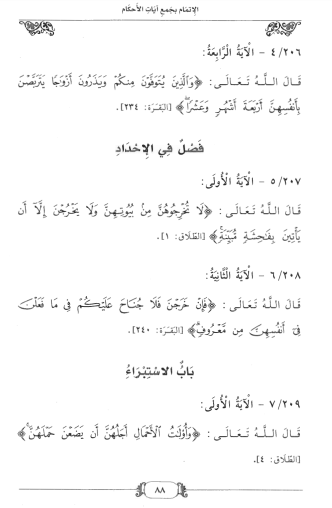 الإتمام بجمع آيات الأحكام
٤/٢٠٦ - الْآيَةُ الرَّابِعَةُ:
قَالَ اللَّهُ تَعَالَى: ﴿وَالَّذِينَ يُتَوَفَّوْنَ مِنكُمْ وَيَذَرُونَ أَزْوَاجًا يَتَرَبَّصْنَ
بِأَنفُسِهِنَّ أَرْبَعَةَ أَشْهُرٍ وَعَشْرًا﴾ [البَقَرَة: ٢٣٤].
فَصْلٌ فِي الإِحْدَادِ
٥/٢٠٧ - الْآيَةُ الْأُولَى:
قَالَ اللَّهُ تَعَالَى: ﴿لَا تُخْرِجُوهُنَّ مِنْ بُيُوتِهِنَّ وَلَا يَخْرُجْنَ إِلَّا أَن
يَأْتِينَ بِفَاحِشَةٍ مُّبَيِّنَةٍ﴾ [الطَّلَاق: ١].
٦/٢٠٨ - الْآيَةُ الثَّانِيَةُ:
قَالَ اللَّهُ تَعَالَى: ﴿فَإِنْ خَرَجْنَ فَلَا جُنَاحَ عَلَيْكُمْ فِي مَا فَعَلْنَ
فِي أَنفُسِهِنَّ مِن مَّعْرُوفٍ﴾ [البَقَرَة: ٢٤٠].
بَابُ الاسْتِبْرَاءُ
٧/٢٠٩ - الْآيَةُ الْأُولَى:
قَالَ اللَّهُ تَعَالَى: ﴿وَأُوْلَاتُ الْأَحْمَالِ أَجَلُهُنَّ أَن يَضَعْنَ حَمْلَهُنَّ﴾
[الطَّلَاق: ٤].
٨٨